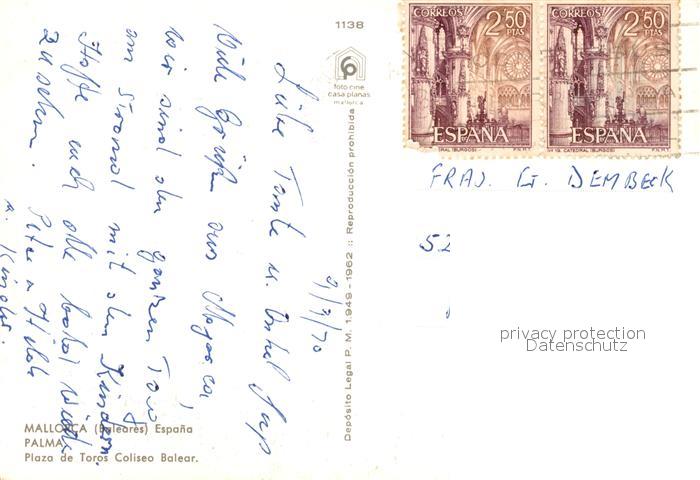 1138
foto cine
casa planas
mallorca
Depósito Legal P. M. 1949-1962 :: Reproducción prohibida
9/7/70
Liebe Tante u. Onkel
Viele Grüße aus Majorca,
wir sind den ganzen Tag
am Strand mit den Kindern.
Hoffe euch alle bald wieder
zu sehen. Peter u. Hilde
u. Kinder.
MALLORCA (Baleares) España
PALMA
Plaza de Toros Coliseo Balear.
CORREOS 2'50 PTAS
ESPAÑA
CORREOS 2'50 PTAS
ESPAÑA
CATEDRAL (BURGOS) F.N.M.T.
FRAU. G. DEMBECK
52
privacy protection
Datenschutz